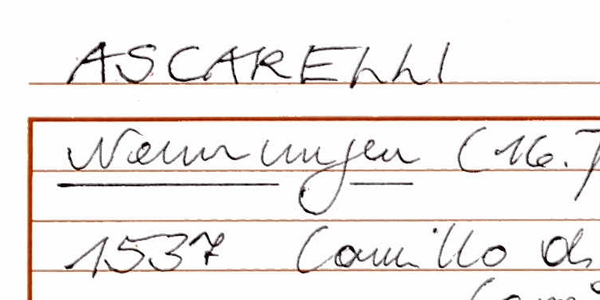 ASCARELLI
Nennungen (16.J
1537 Camillo de
Cami